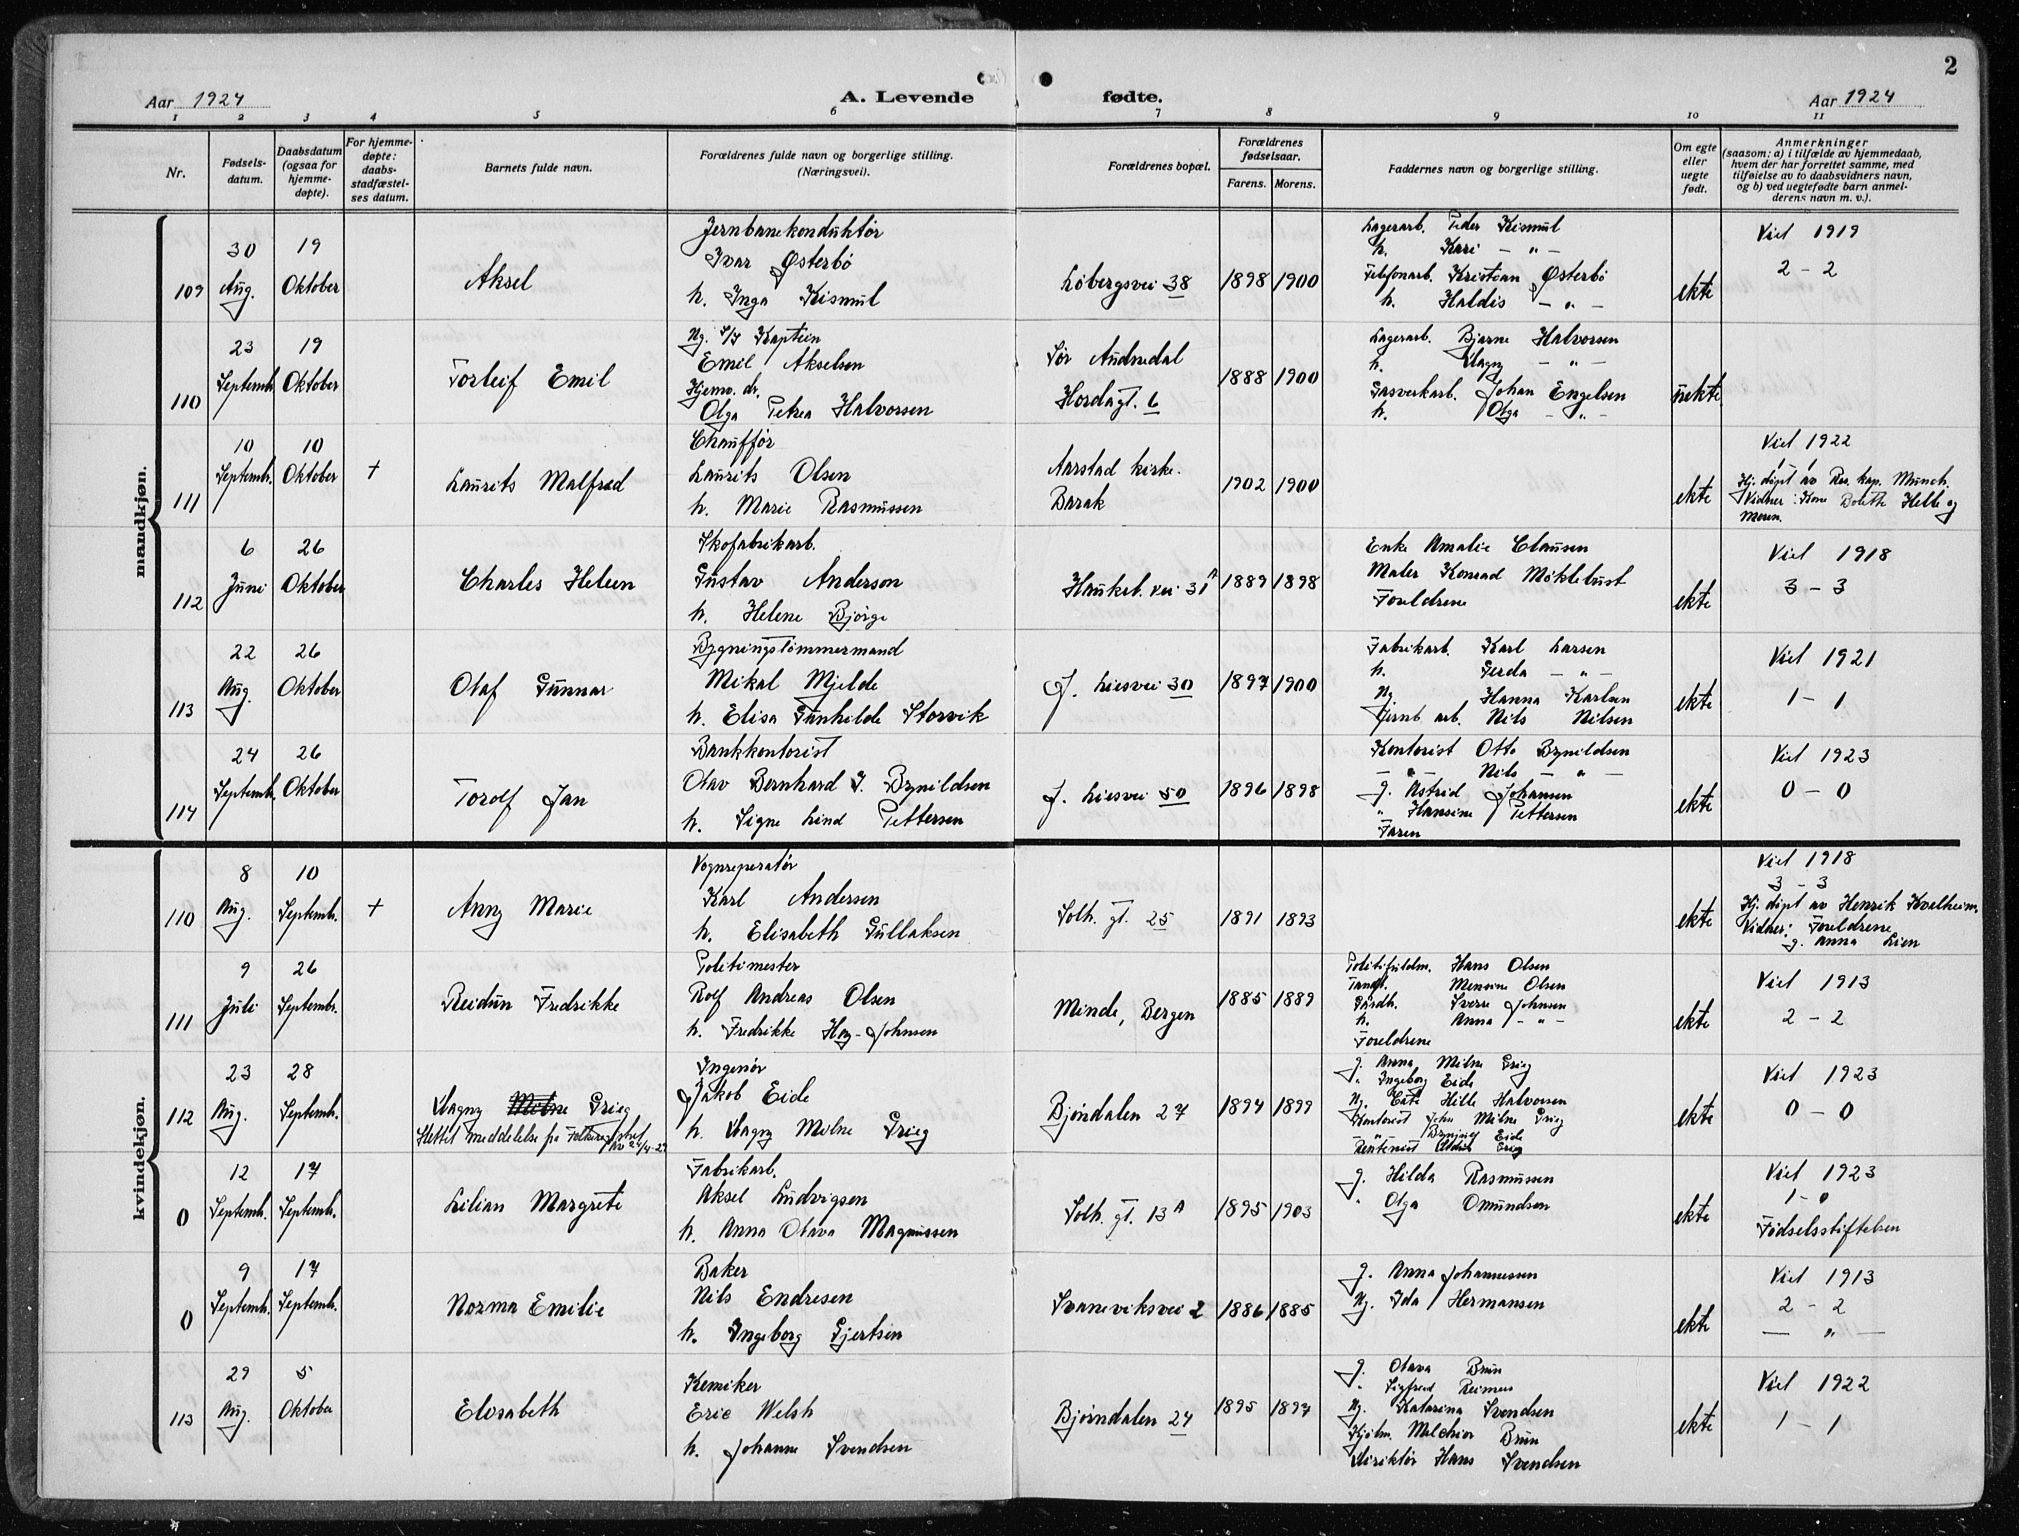 2
Aar 1924
A. Levende fødte.
Aar 1924
1 2 3 4 5 6 7 8 9 10 11
Nr.
Fødsels-
datum.
Daabsdatum
(ogsaa for
hjemme-
døpte).
For hjemme-
døpte:
daabs-
stadfæstel-
ses datum.
Barnets fulde navn.
Forældrenes fulde navn og borgerlige stilling.
(Næringsvei).
Forældrenes bopæl.
Forældrenes
fødselsaar.
Farens. Morens.
Faddernes navn og borgerlige stilling.
Om egte
eller
uegte
født.
Anmerkninger
(saasom: a) i tilfælde av hjemmedaab,
hvem der har forrettet samme, med
tilføielse av to daabsvidners navn,
og b) ved uegtefødte barn anmel-
derens navn m. v.).
mandkjøn.
109
30
Aug.
19
Oktober
Aksel
Jernbanekonduktør
Ivar Østerbø
h. Inga Kismul
Løbergsvei 38
1898 1900
Lagerarb. Peder Kismul
h. Kari — " —
Telefonarb. Kristian Østerbø
h. Haldis — " —
ekte
Viet 1919
2 - 2
110
23
Septemb.
19
Oktober
Torleif Emil
Ng. S/S Kaptein
Emil Akselsen
Hjemv. dr.
Olga Petrea Halvorsen
Sør Audnedal
Hordagt. 6
1888 1900
Lagerarb. Bjarne Halvorsen
h. Dagny — " —
Gasverkarb. Johan Engelsen
h. Olga — " —
uekte
111
10
Septemb.
10
Oktober
+
Laurits Malfred
Chauffør
Laurits Olsen
h. Marie Rasmussen
Aarstad kirke.
Barak
1902 1900
ekte
Viet 1922
Hj. døpt av Res. kap. Münch.
Vidner: Kone Boleth Helle og
Moren.
112
6
Juni
26
Oktober
Charles Heleen
Skofabrikarb.
Gustav Anderson
h. Helene Bjørge
Haukeb. vei 31 A
1889 1898
Enke Amalie Clausen
Maler Konrad Møklebust
Foreldrene
ekte
Viet 1918
3 - 3
113
22
Aug.
26
Oktober
Olaf Gunnar
Bygningstømmermand
Mikal Mjelde
h. Elisa Gunhilde Storvik
J. Liesvei 30
1897 1900
Fabrikarb. Karl Larsen
h. Gerda — " —
Ng. Hanna Karlsen
Jernb. arb. Nils Nilsen
ekte
Viet 1921
1 - 1
114
24
Septemb.
26
Oktober
Torolf Jan
Bankkontorist
Olav Bernhard J. Brynildsen
h. Signe Lind Pettersen
J. Liesvei 50
1896 1898
Kontorist Otto Brynildsen
— " — Nils — " —
g. Astrid Johansen
" Hansine Pettersen
Faren
ekte
Viet 1923
0 - 0
kvindekjøn.
110
8
Aug.
10
Septemb.
+
Anny Marie
Vognreparatør
Karl Andersen
h. Elisabeth Gullaksen
Solh. gt. 25
1891 1893
ekte
Viet 1918
3 - 3
Hj. døpt av Henrik Kvalheim.
Vidner: Foreldrene
g. Anna Lien
111
9
Juli
26
Septemb.
Reidun Fredrikke
Politimester
Rolf Andreas Olsen
h. Fredrikke Høy-Johnsen
Minde, Bergen
1885 1889
Politifuldm. Hans Olsen
Mensine Olsen
Gårdb. Sverre Johnsen
h. Anna — " —
Foreldrene
ekte
Viet 1913
2 - 2
112
23
Aug.
28
Septemb.
Dagny Milne Grieg
Slettet meddelelse fra Folkereg.
av 24/4-27
Ingeniør
Jakob Eide
h. Dagny Milne Grieg
Bjørndalen 27
1894 1899
g. Anna Milne Grieg
" Ingeborg Eide
Ng. Cate Hille Halvorsen
Kontorist John Milne Grieg
Brynjulf Eide
Grieg
ekte
Viet 1923
0 - 0
0
12
Septemb.
17
Septemb.
Lilian Margrete
Fabrikarb.
Aksel Ludvigsen
h. Anna Olava Magnussen
Solh. gt. 13 A
1895 1903
g. Hilda Rasmussen
" Olga Omundsen
ekte
Viet 1923
1 - 0
Fødselsstiftelsen
0
9
Septemb.
17
Septemb.
Norma Emilie
Baker
Nils Endresen
h. Ingeborg Gjertsen
Svaneviksvei 2
1886 1885
g. Anna Johannessen
Ng. Ida Hermansen
ekte
Viet 1913
2 - 2
— " —
113
29
Aug.
5
Oktober
Elisabeth
Kemiker
Eric Welsh
h. Johanne Svendsen
Bjørndalen 24
1895 1897
g. Olava Brun
" Sigfrid Reimers
Ng. Katarina Svendsen
Melchior Brun
Direktør Hans Svendsen
ekte
Viet 1922
1 - 1